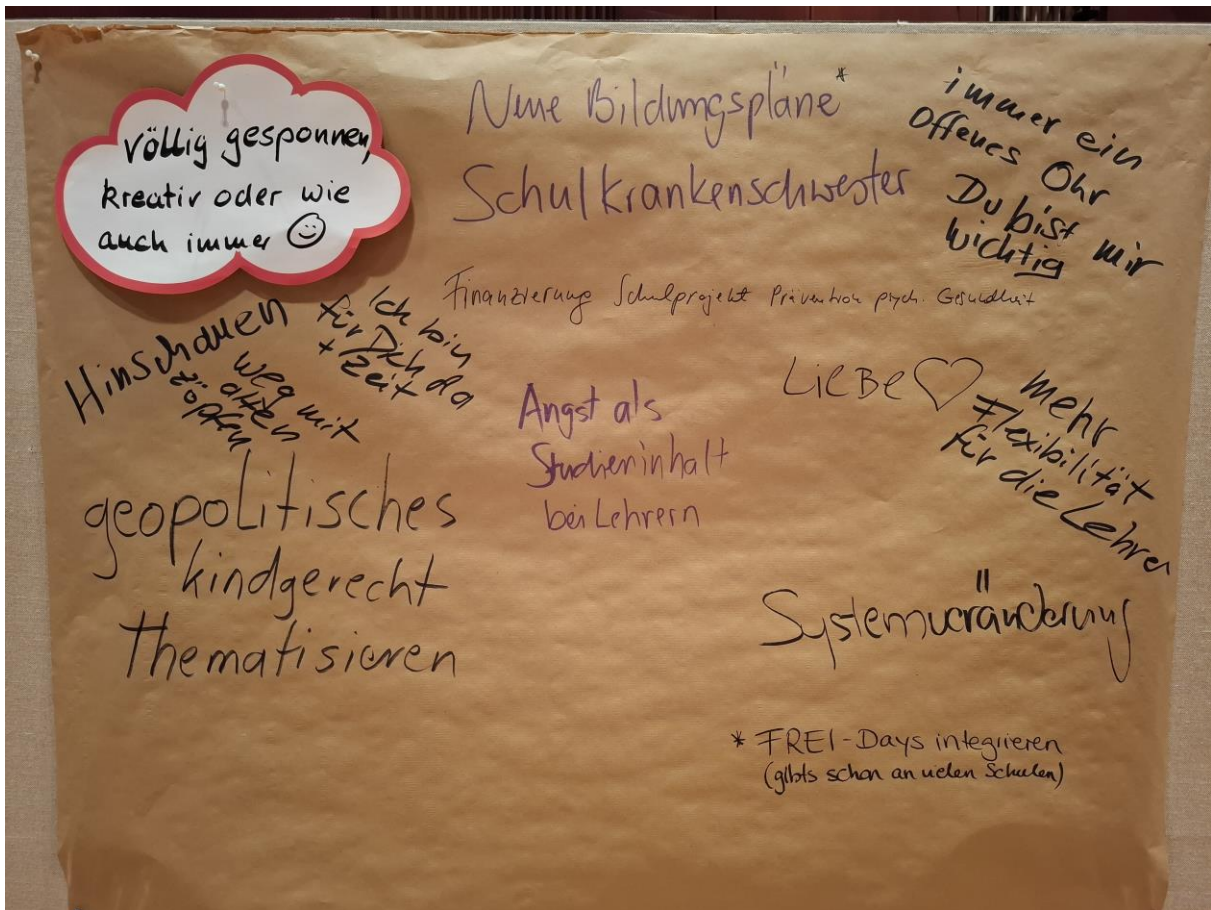 völlig gesponnen,
kreativ oder wie
auch immer ☺
Neue Bildungspläne*
Schulkrankenschwester
immer ein
Offenes Ohr
Du bist mir
wichtig
Finanzierung Schulprojekt Prävention psych. Gesundheit
Hinschauen
Ich bin
für Dich da
+ Zeit
weg mit
alten
Zöpfen
Angst als
Studieninhalt
bei Lehrern
LiEBE ♡
mehr
Flexibilität
für die Lehrer
geopolitisches
kindgerecht
thematisieren
Systemveränderung
* FREI-Days integrieren
(gibts schon an vielen Schulen)